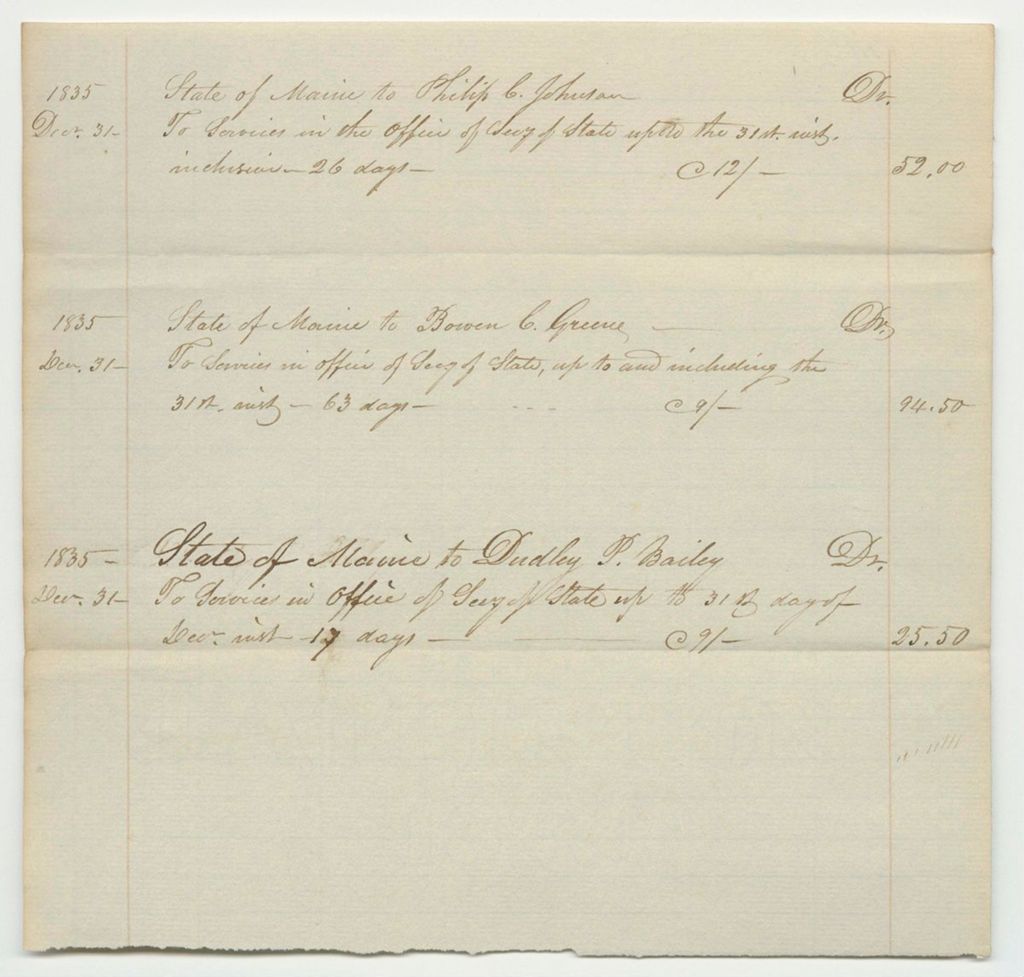 1835 State of Maine to Philip C. Johnson Dr.
Decr. 31- To Services in the office of Secy of State up to the 31st. inst.
inclusive - 26 days - @ 12/- 52.00
1835 State of Maine to Bowen C. Greene Dr.
Decr. 31- To Services in office of Secy of State, up to and including the
31st. inst - 63 days - @ 9/- 94.50
1835- State of Maine to Dudley P. Bailey Dr.
Decr. 31- To Services in Office of Secy of State up to 31st day of
Decr. inst - 17 days - @ 9/- 25.50